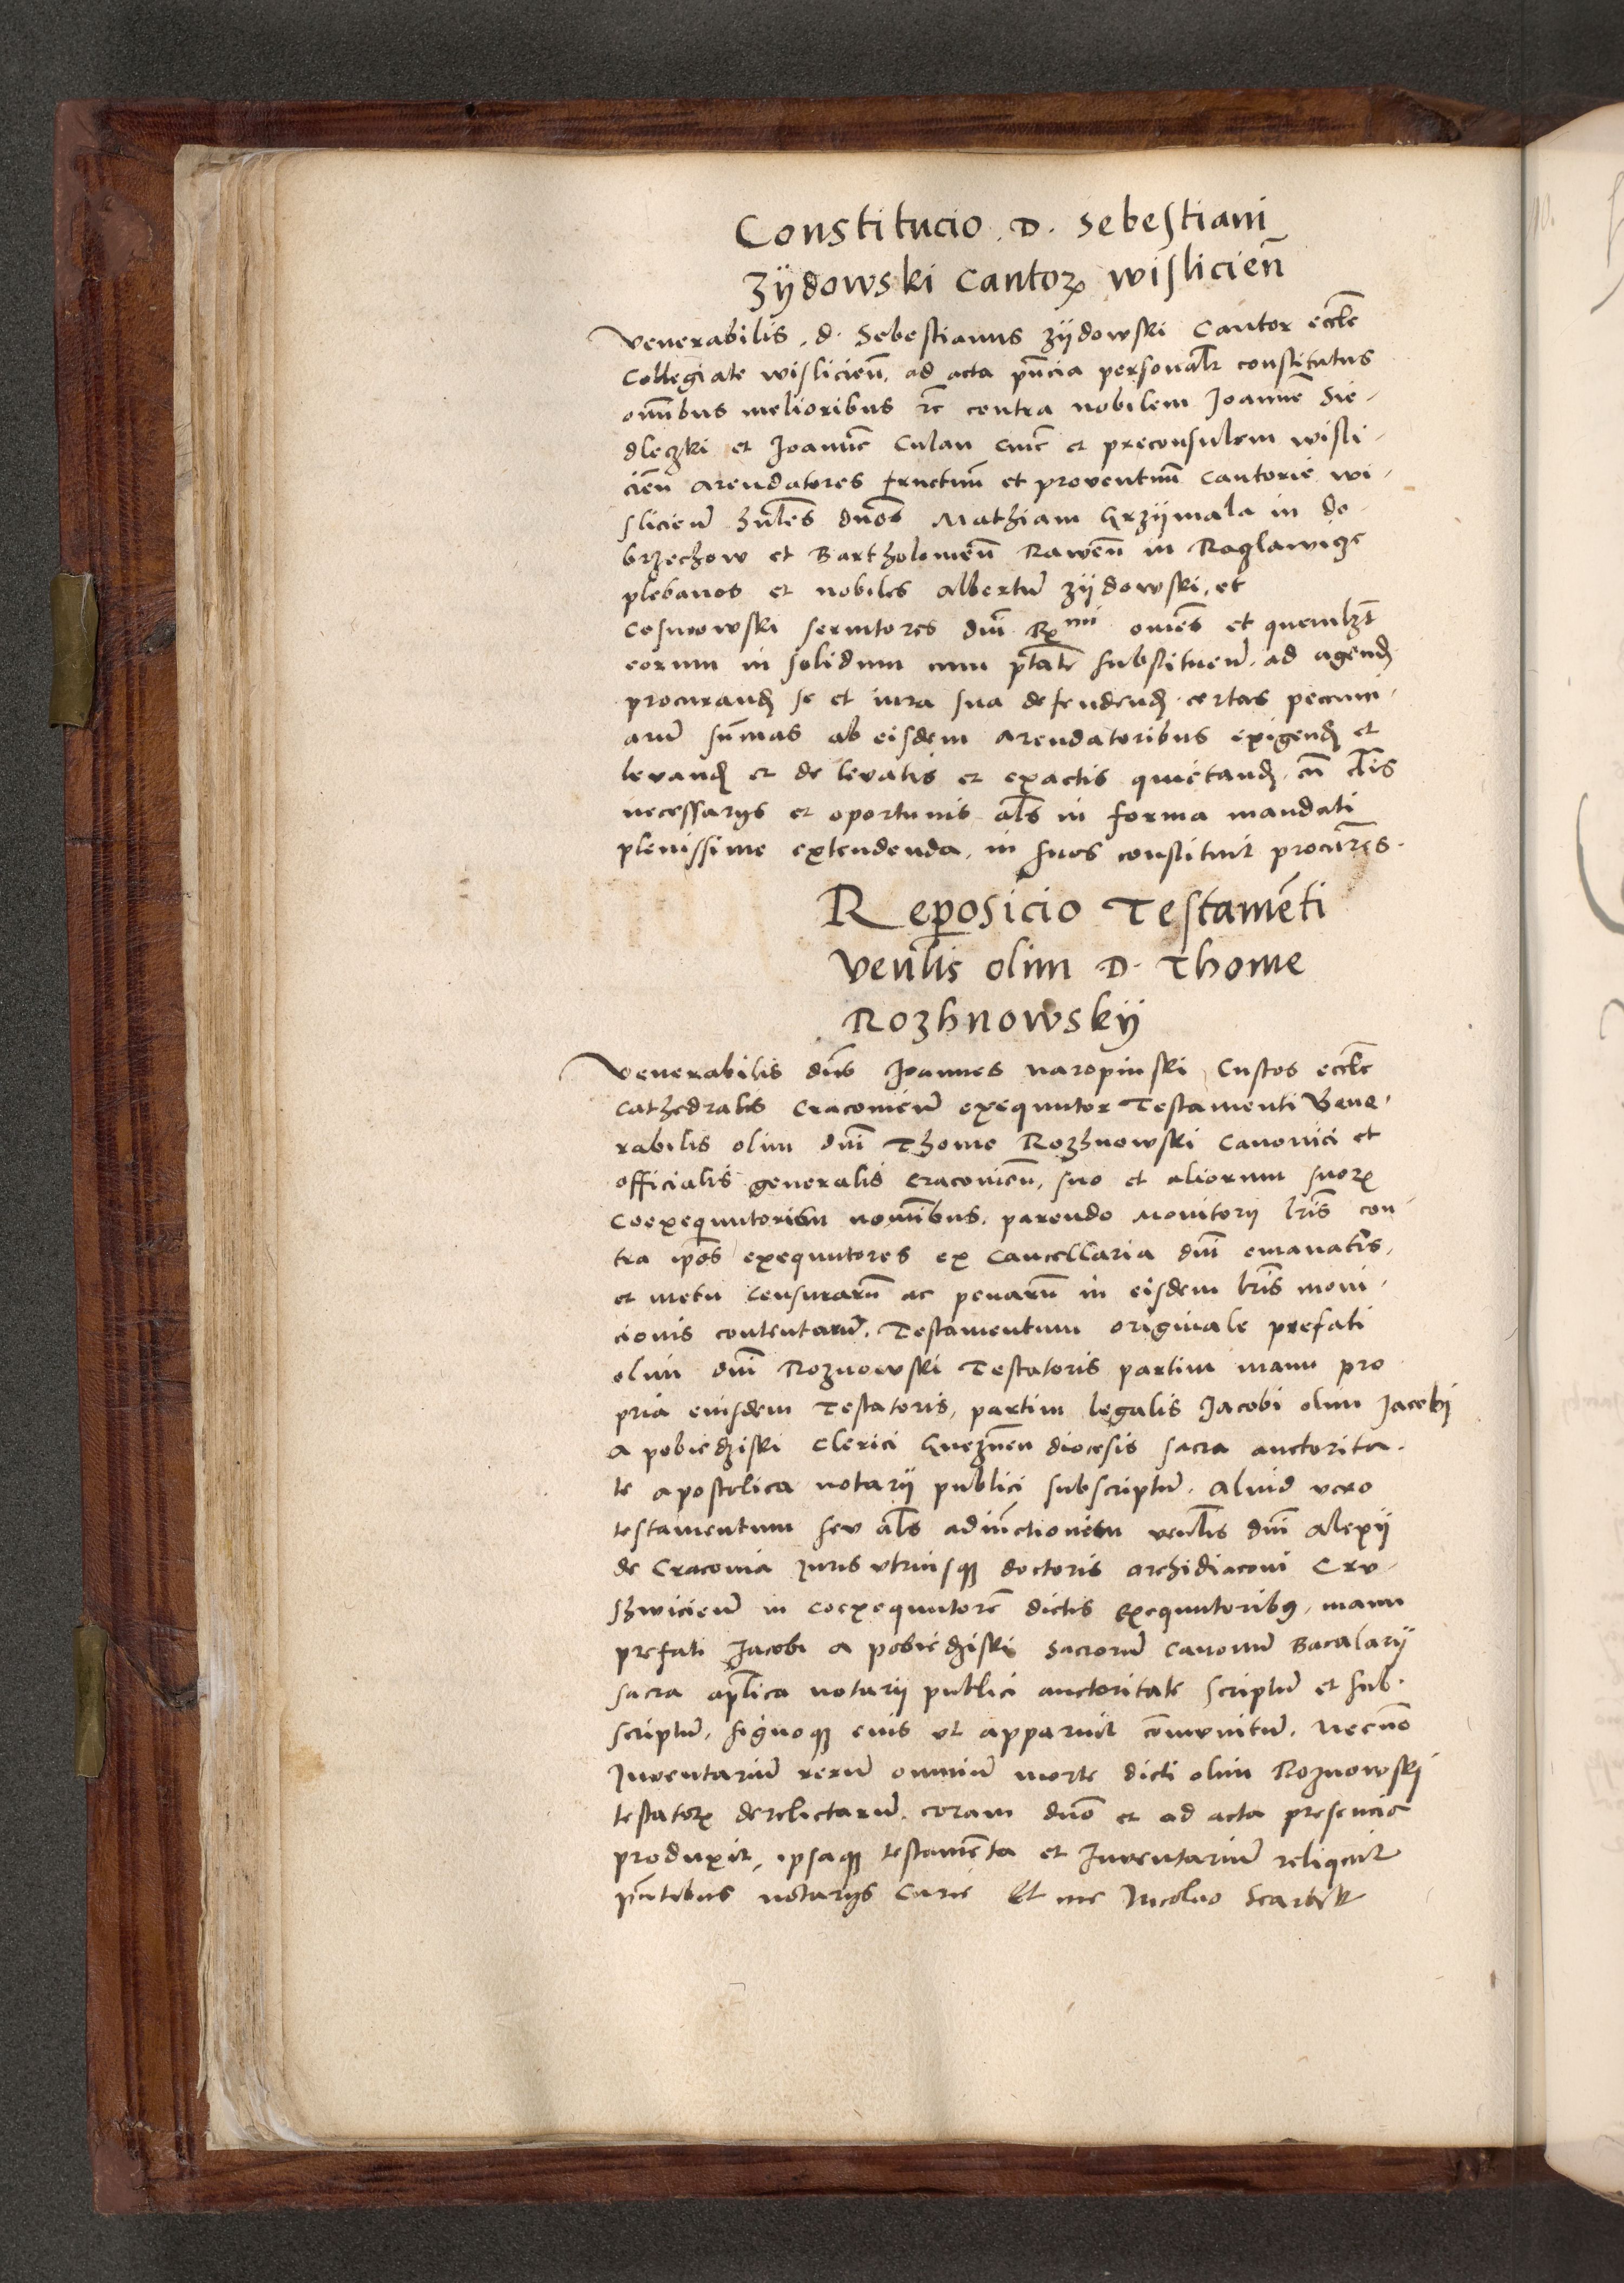 Constitucio D. Sebestiani
Zÿdowski Cantorꝭ Wisliciēn
Venerabilis d. Sebestianus Zÿdowski Cantor eccl̄e
Collegiate Wislicieñ. ad acta pñcia personal̄r constitutus
om̄ibus melioribus r̄c contra nobilem Joannē Sie-
dleczki et Joannē Culan Civē et preconsulem Wisli-
cieñ Arendatores fructuū et proventuū Cantorie Wi-
slicieñ hñles dnos Mathiam Grzÿmala in Do-
brzechow et Bartholomeū Raweñ in Raglawicze
plebanos et nobiles Albertū Zÿdowski, et
Cosmowski servitores dni R^mi omēs et quemlꝫt
eorum in solidum cum ptāte substituen̄. ad agenđ
procuranđ se et iura sua defendenđ. certas pecuni-
arū sum̄as ab eisdem Arendatoribus exigenđ et
levanđ et de levatis et exactis quietanđ. cū cl̄is
necessarÿs et oportunis al̄s in forma mandati
plenissime extendenda. in suos constituit procūres.
Reposicio Testamēti
Venl̄is olim D. Thome
Rozhnowskÿ
Venerabilis dn̄s Joannes Naropinski Custos eccl̄e
Cathedralis Cracovieñ exequutor Testamenti Vene-
rabilis olim dn̄i Thome Rozhnowski Canonici et
officialis generalis Cracovieñ, suo et aliorum suorꝭ
Coexequutorum nom̄ibus. parendo Monitorÿ lr̄is con-
tra ip̄os exequutores ex Cancellaria dn̄i emanatis,
et metu Censurarū ac penarū in eisdem lr̄is moni-
cionis contentarū. Testamentum originale prefati
olim dn̄i Roznowski Testatoris partim manu pro
pria eiusdem Testatoris, partim legalis Jacobi olim Jacobi
a Pobiedziski Clerici Gneznēn diocesis sacra auctorita-
te apostolica notarÿ publici subscriptū. Aliud vero
testamentum seu al̄s adiūctionem venl̄is dn̄i Alexÿ
de Cracovia Juris utriusqꝫ doctoris Archidiaconi Cru-
szwicieñ in Coexequutorē dictis exequutoribꝰ, manu
prefati Jacobi a Pobiedziski Sacrorū Canonū Bacalarÿ
sacra ap̄lica notarÿ publici auctoritate scriptū et sub-
scriptū, signoqꝫ eius ut apparuit cōmunitū. Necnō
Inventariū rerū omniū morte dicti olim Roznowski
testatorꝭ derelictarū. coram dn̄o et ad acta presencia
produxit, ipsaqꝫ testamēta et Inventariū reliquit
pn̄tibus notarÿs Curie Et me Nicolao